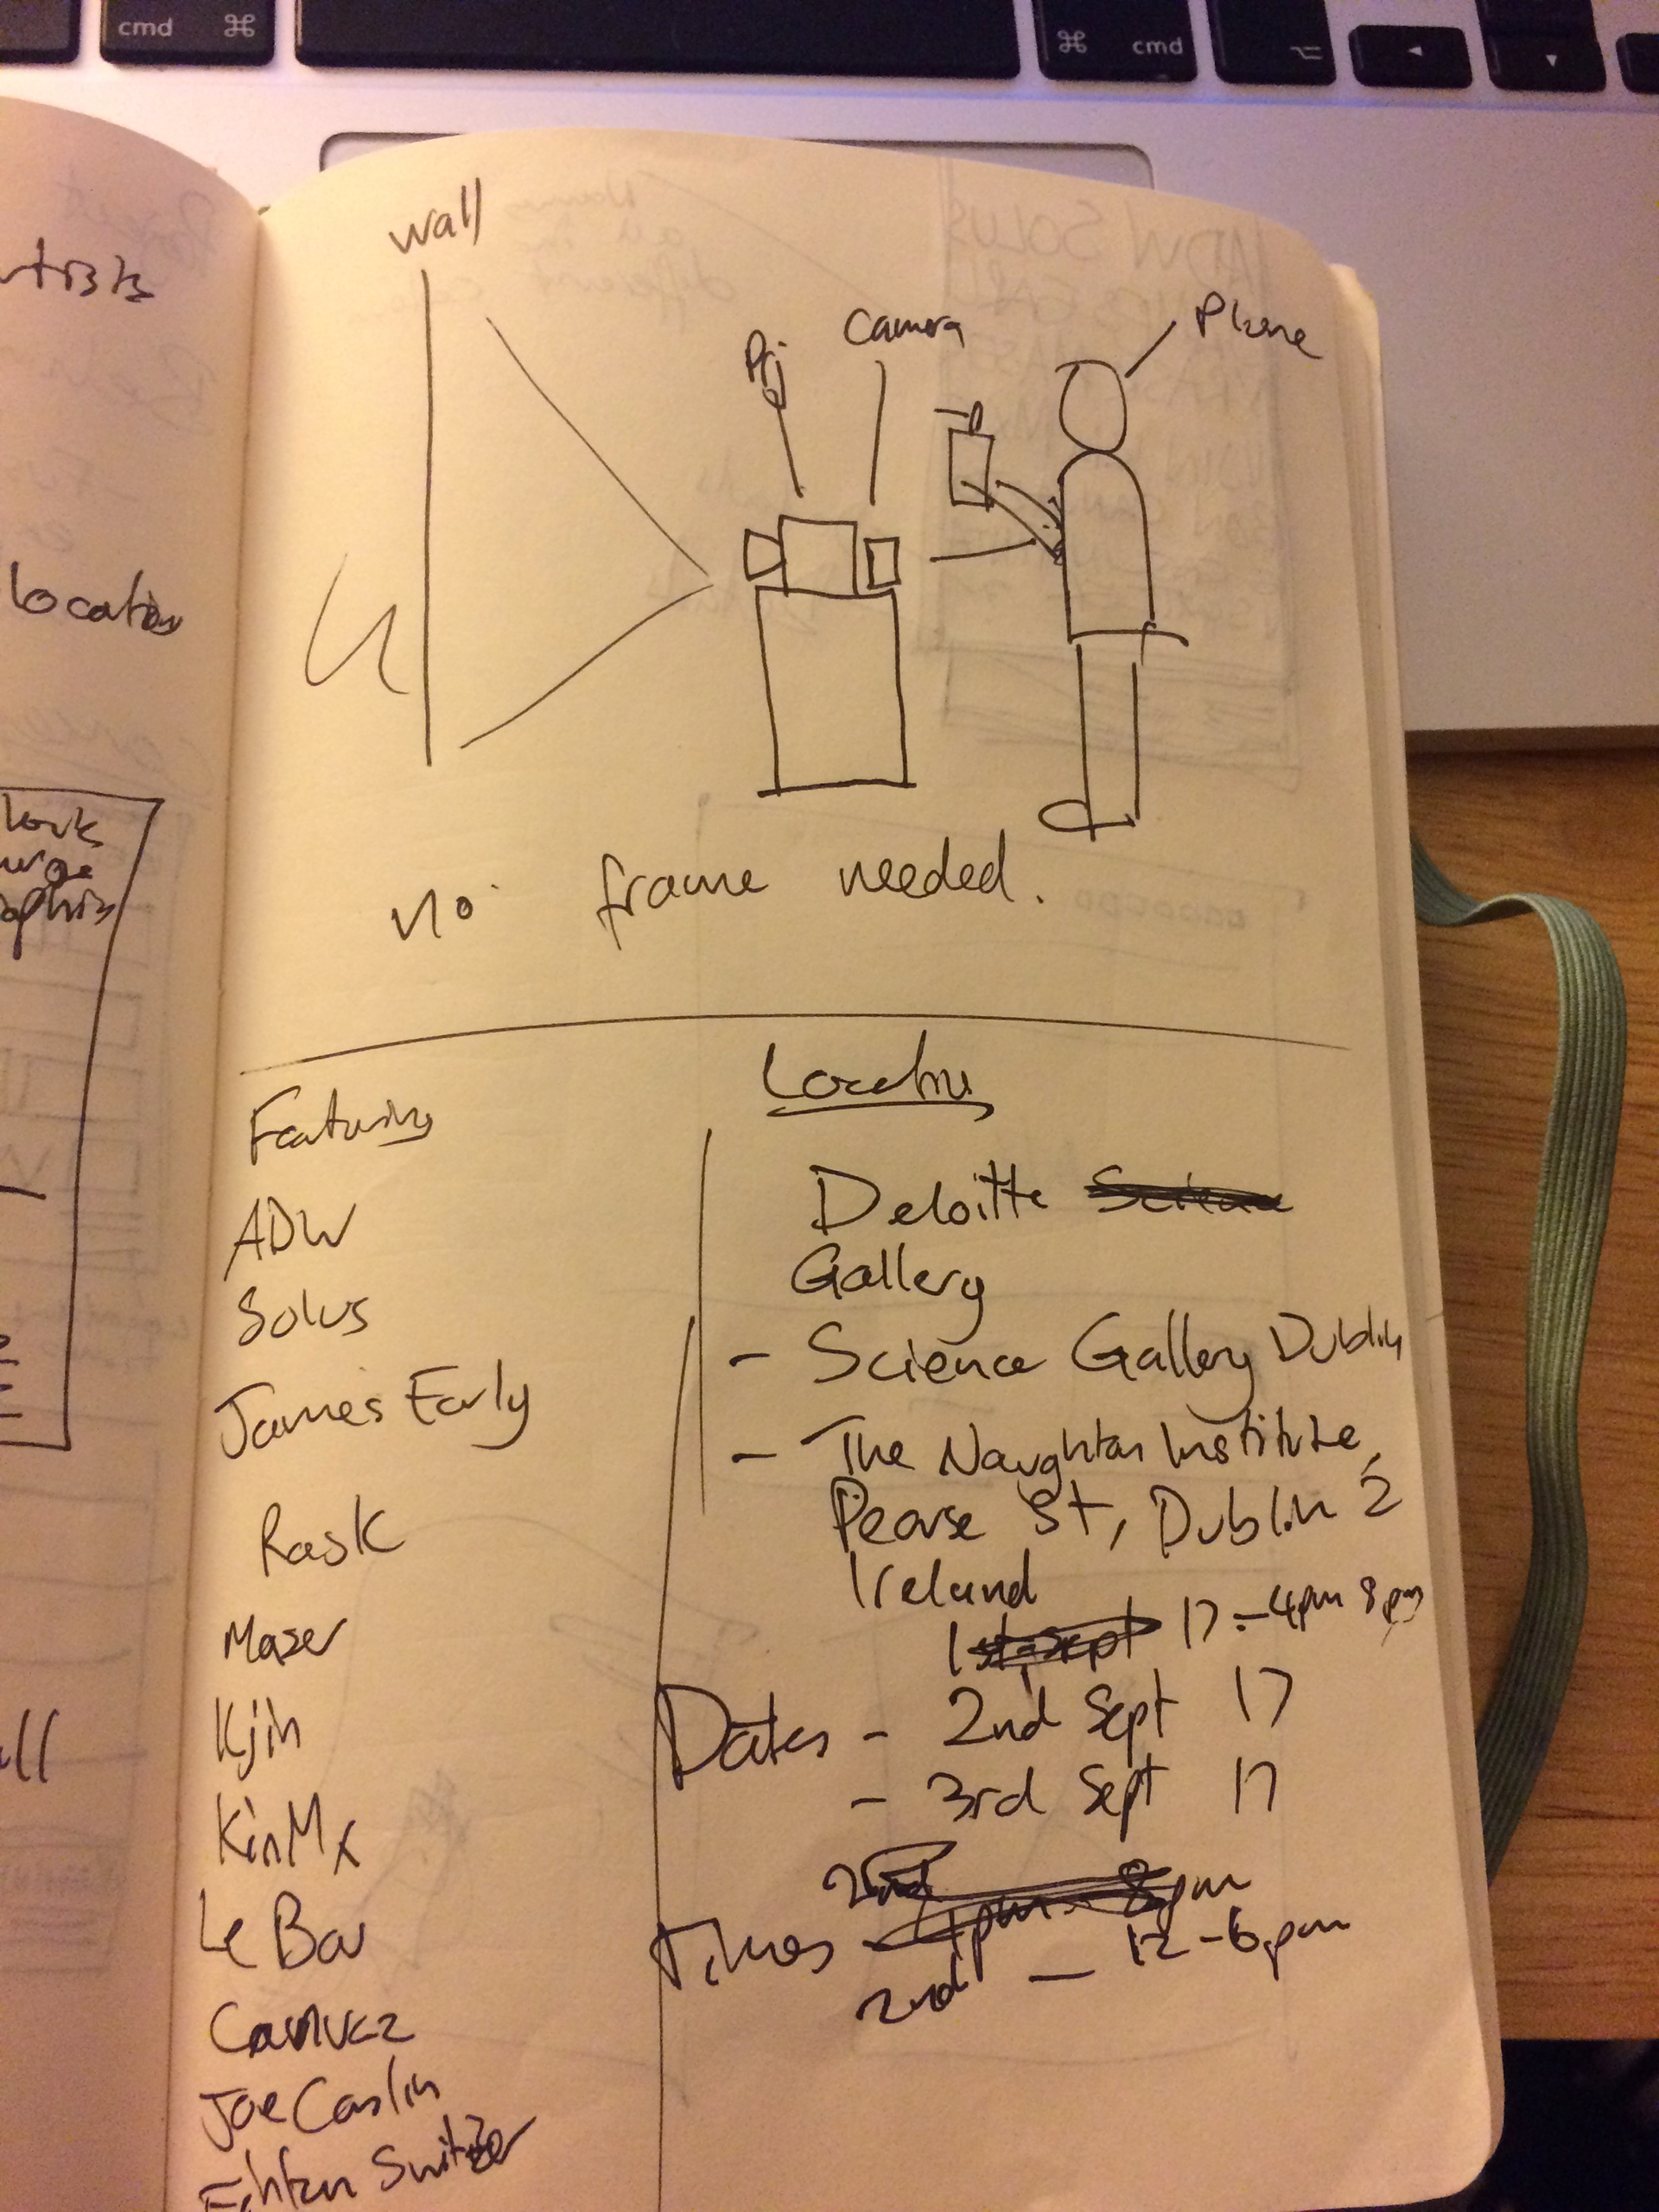 cmd ⌘
⌘ cmd
wall
Prj
Camera
Phone
no frame needed.
Featuring
ADW
Solus
James Early
Rask
Maser
Kjin
KinMx
Le Bas
Canvaz
Joe Caslin
Switzer
Location
Deloitte Science
Gallery
- Science Gallery Dublin
- The Naughton Institute,
Pearse St, Dublin 2
Ireland
1st Sept 17 - 4pm 8pm
Dates - 2nd Sept 17
- 3rd Sept 17
2nd
Times 4pm - 8pm
2nd - 12-6pm
location